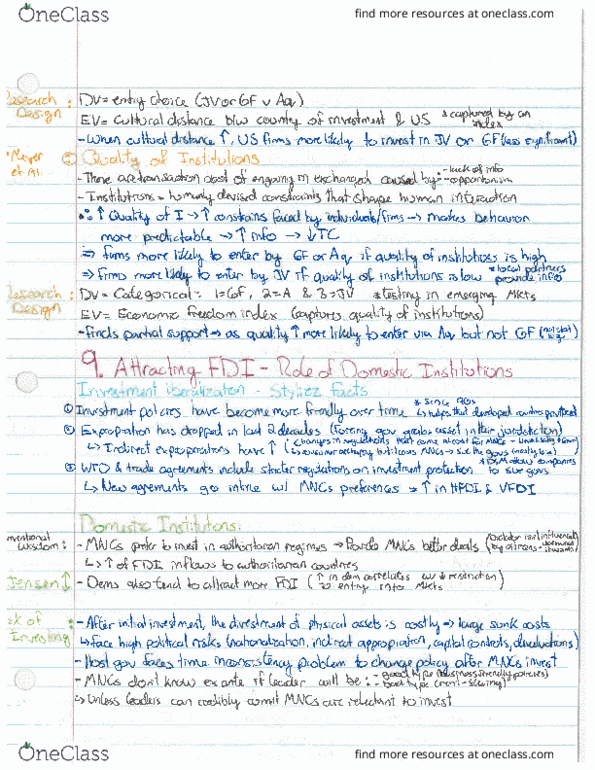 OneClass
find more resources at oneclass.com
esearch Design : DV = entry choice (JV or GF v Aq)
EV = Cultural distance b/w country of investment & US * captured by an index
- When cultural distance ↑, US firms more likely to invest in JV or GF (less significant)
* Meyer et Al. ② Quality of Institutions
- There are transaction cost of engaging in exchanges caused by: - lack of info - opportunism
- Institutions = humanly devised constraints that shape human interaction
∴ ↑ Quality of I → ↑ constrains faced by individuals/firms → makes behavior
more predictable → ↑ info → ↓ TC
⇒ firms more likely to enter by GF or Aq if quality of institutions is high
⇒ firms more likely to enter by JV if quality of institutions is low * local partners provide info
esearch Design : DV = Categorical : 1=GF, 2=A & 3=JV * testing in emerging Mkts
EV = Economic freedom index (captures quality of institutions)
- finds partial support → as quality ↑ more likely to enter via Aq but not GF (not stat sig)
9. Attracting FDI - Role of Domestic Institutions
Investment liberalization - Stylized facts
① Investment policies have become more friendly over time * since 90s ↳ helps that developed countries
② Expropriation has dropped in last 2 decades (forcing gov grabs asset in their jurisdiction)
↳ Indirect expropriations have ↑ (changes in regulations that come at cost for MNCs
③ WTO & trade agreements include stricter regulations on investment protection * allow companies to sue govs
↳ New agreements go inline w/ MNCs preferences ⇒ ↑ in HFDI & VFDI
Domestic Institutions:
nventional wisdom : - MNCs prefer to invest in authoritarian regimes → Provide MNCs better deals
↳ ↑ of FDI inflows to authoritarian countries
Jensen ↑ - Dems also tend to attract more FDI (↑ in dem correlates w/ ↓ restriction to entry into Mkts)
sk of Investing : - After initial investment, the divestment of physical assets is costly ⇒ large sunk costs
↳ face high political risks (nationalization, indirect appropriation, capital controls, devaluations)
- Host gov faces time inconsistency problem to change policy after MNCs invest
- MNCs don't know ex ante if leader will be: - good type (business friendly policies) - bad type (rent-seizing)
↳ Unless leaders can credibly commit MNCs are reluctant to invest
OneClass
find more resources at oneclass.com